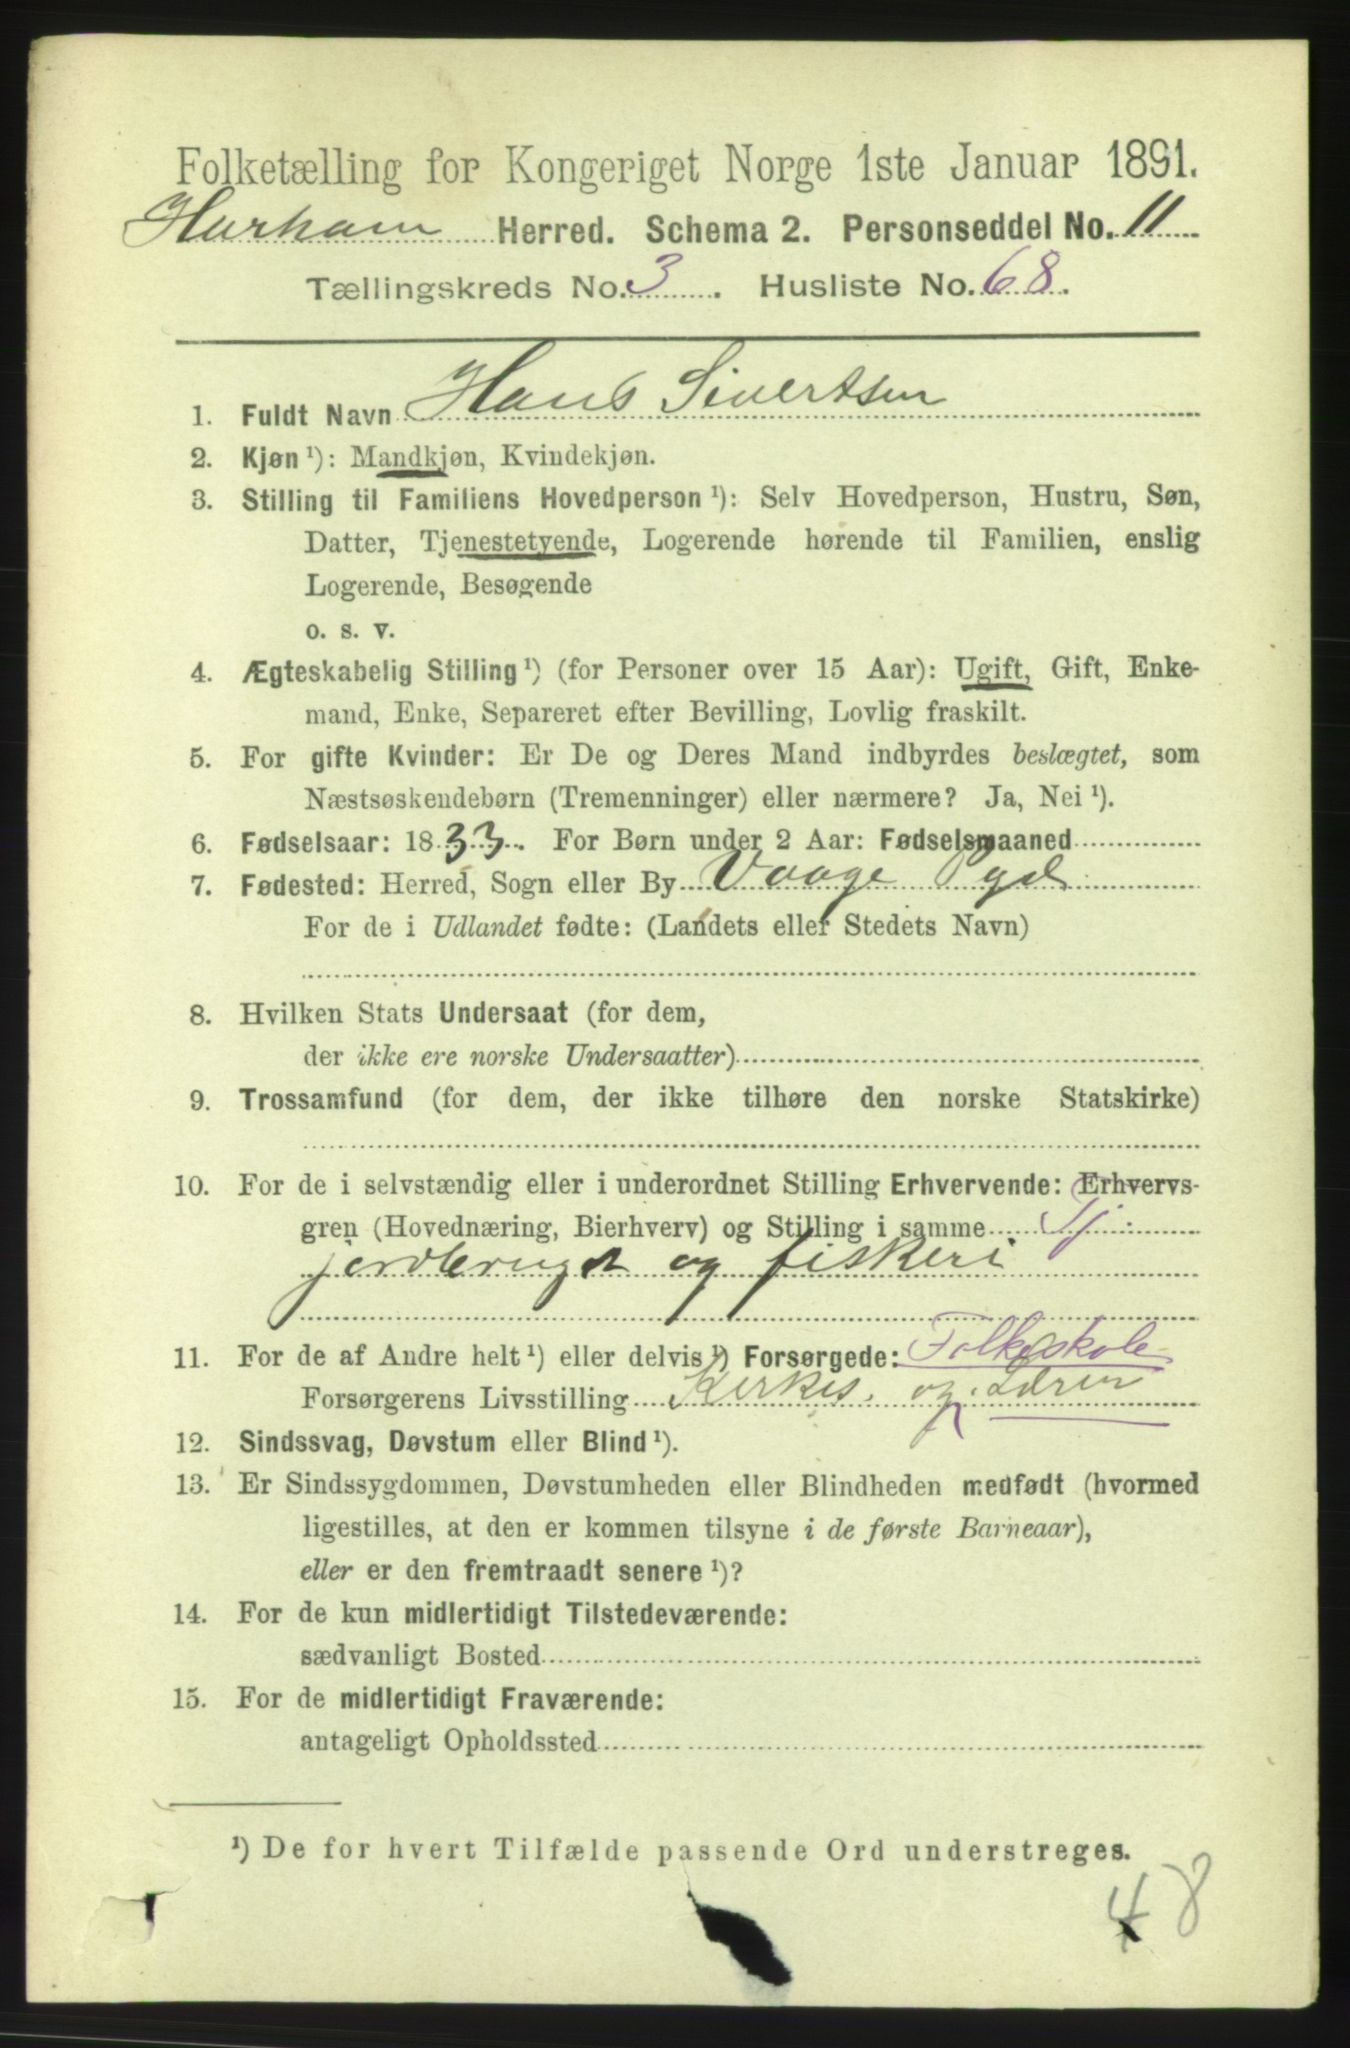 Folketælling for Kongeriget Norge 1ste Januar 1891.
Harham Herred. Schema 2. Personseddel No. 11
Tællingskreds No. 3. Husliste No. 68.
1. Fuldt Navn Hans Sivertsen
2. Kjøn ¹): Mandkjøn, Kvindekjøn.
3. Stilling til Familiens Hovedperson ¹): Selv Hovedperson, Hustru, Søn,
Datter, Tjenestetyende, Logerende hørende til Familien, enslig
Logerende, Besøgende
o. s. v.
4. Ægteskabelig Stilling ¹) (for Personer over 15 Aar): Ugift, Gift, Enke-
mand, Enke, Separeret efter Bevilling, Lovlig fraskilt.
5. For gifte Kvinder: Er De og Deres Mand indbyrdes beslægtet, som
Næstsøskendebørn (Tremenninger) eller nærmere? Ja, Nei ¹).
6. Fødselsaar: 1833. For Børn under 2 Aar: Fødselsmaaned
7. Fødested: Herred, Sogn eller By Vaage Pgd
For de i Udlandet fødte: (Landets eller Stedets Navn)
8. Hvilken Stats Undersaat (for dem,
der ikke ere norske Undersaatter)
9. Trossamfund (for dem, der ikke tilhøre den norske Statskirke)
10. For de i selvstændig eller i underordnet Stilling Erhvervende: Erhvervs-
gren (Hovednæring, Bierhverv) og Stilling i samme Tj.
jordbrug og fiskeri
11. For de af Andre helt ¹) eller delvis ¹) Forsørgede: Folkeskole
Forsørgerens Livsstilling Kirkes. og Lærer
12. Sindssvag, Døvstum eller Blind ¹).
13. Er Sindssygdommen, Døvstumheden eller Blindheden medfødt (hvormed
ligestilles, at den er kommen tilsyne i de første Barneaar),
eller er den fremtraadt senere ¹)?
14. For de kun midlertidigt Tilstedeværende:
sædvanligt Bosted
15. For de midlertidigt Fraværende:
antageligt Opholdssted
¹) De for hvert Tilfælde passende Ord understreges.
48